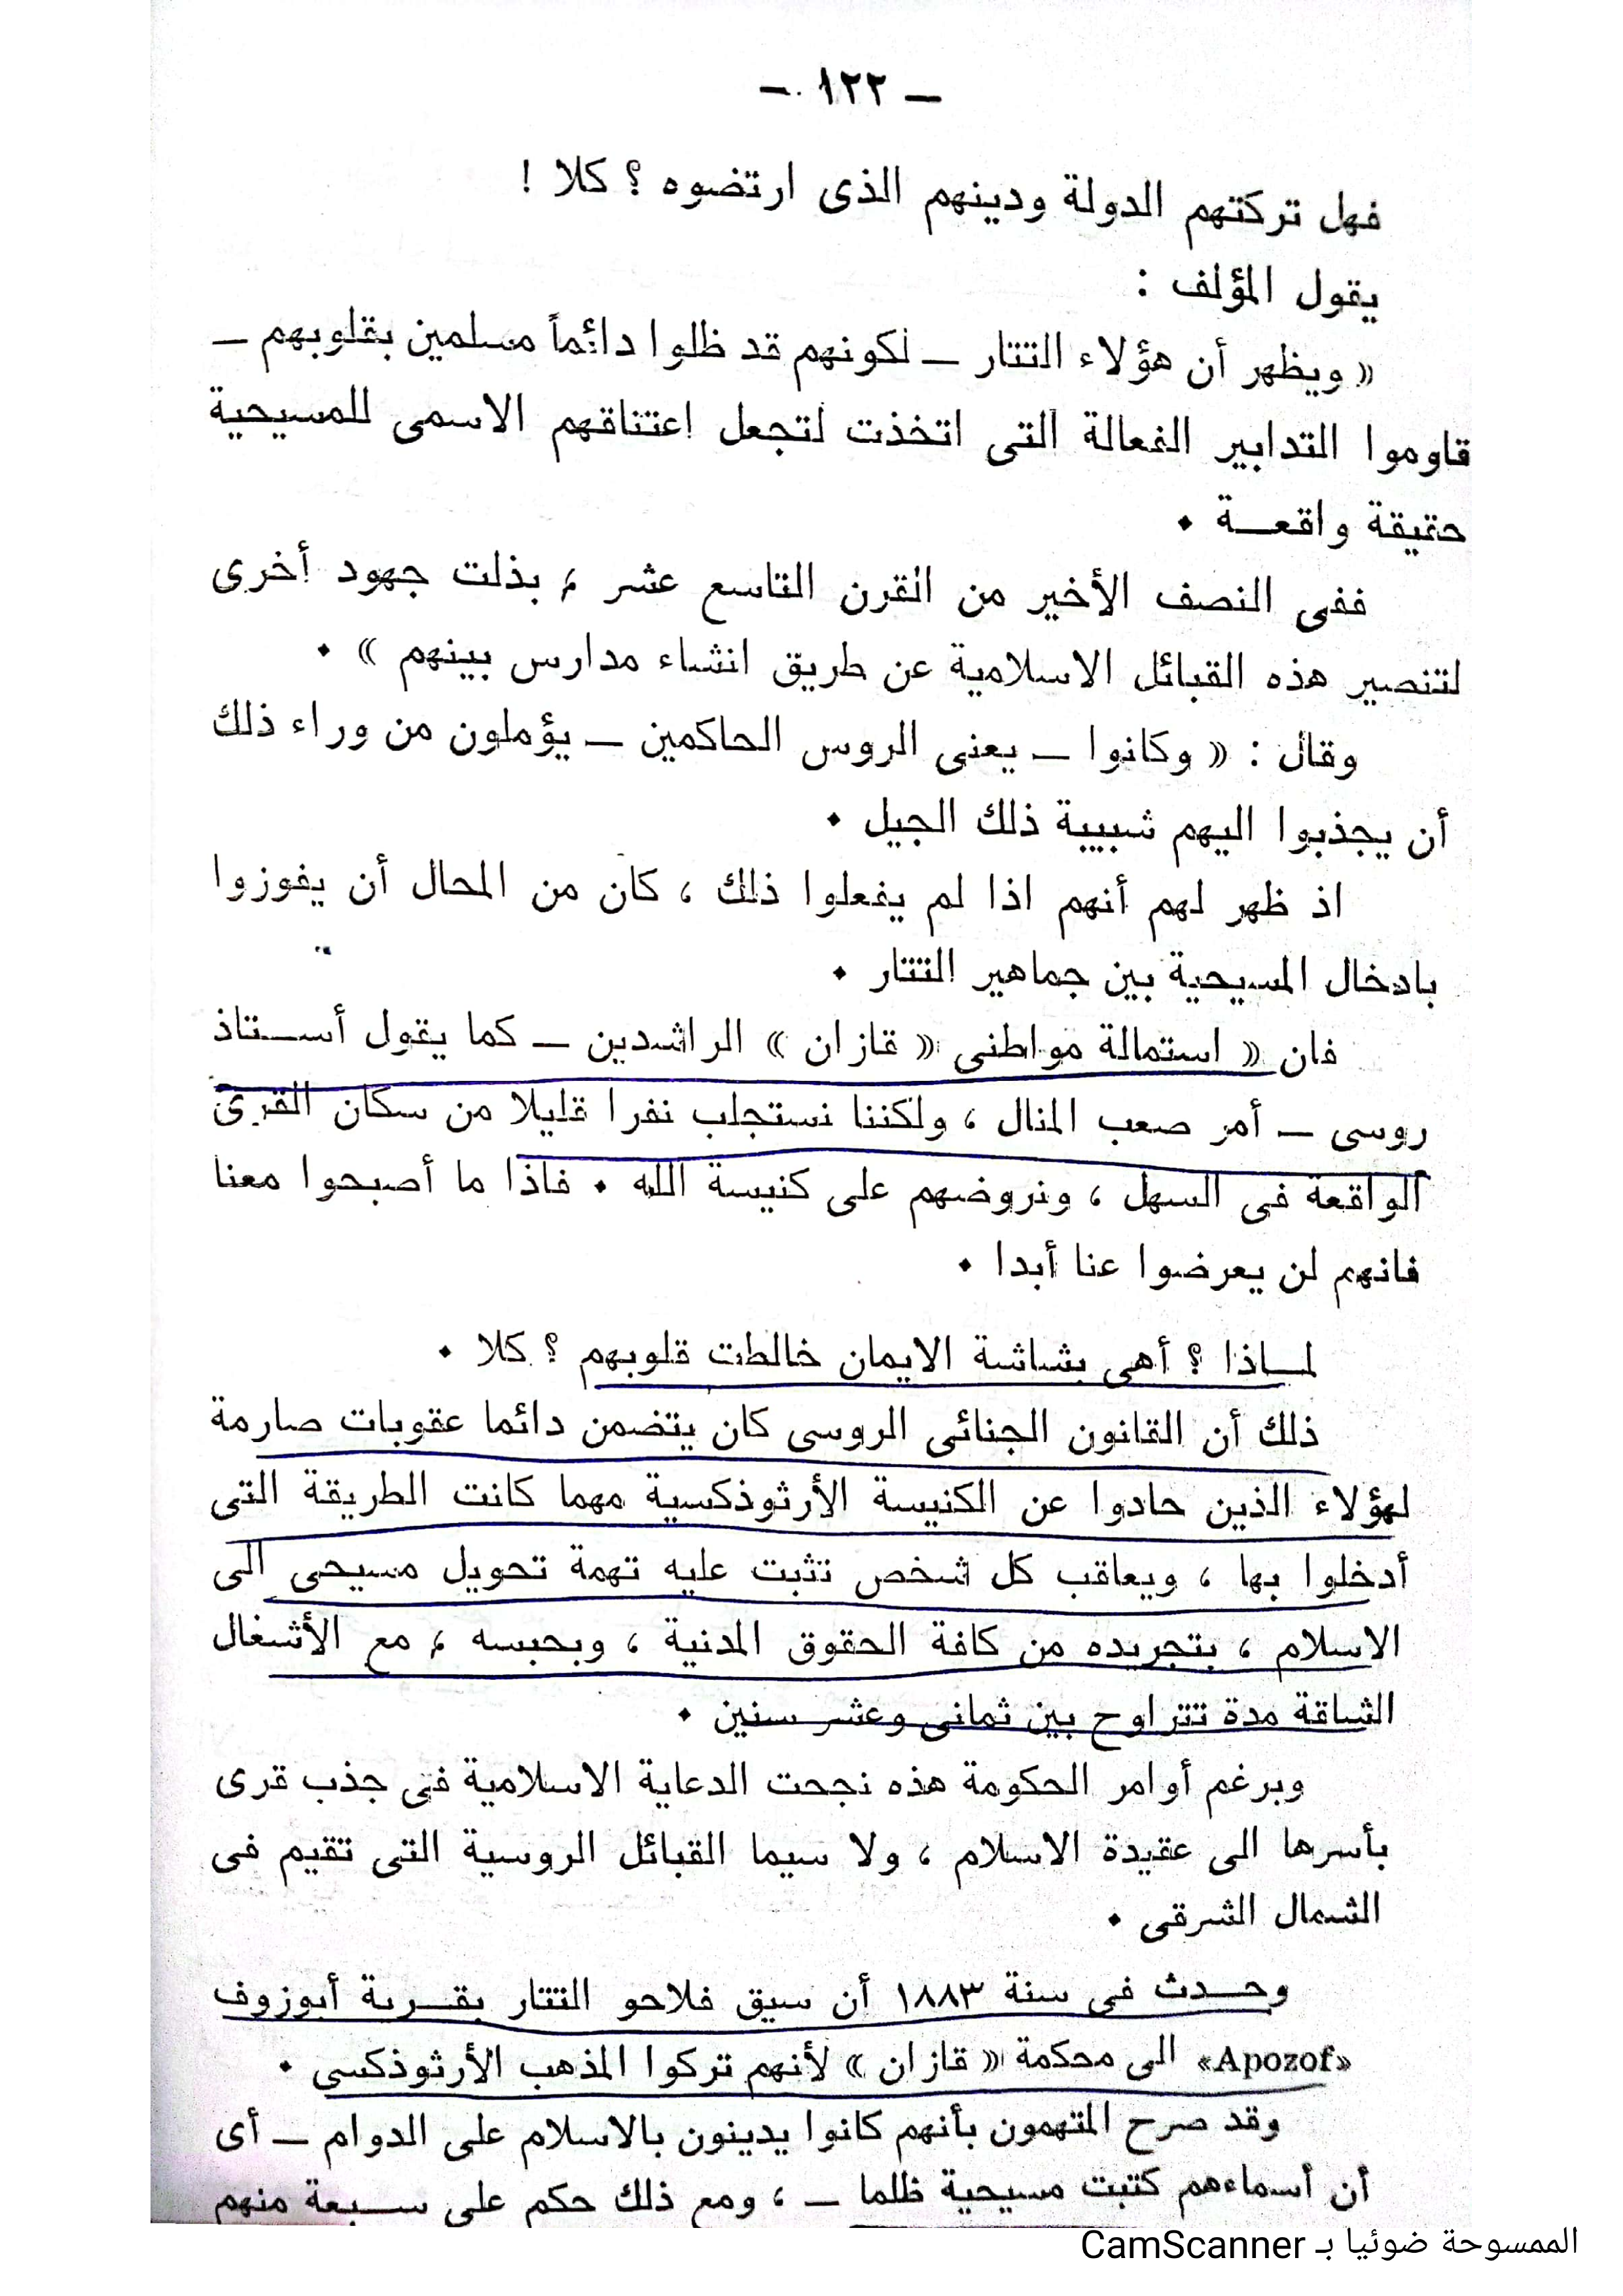 — ١٢٢ —
فهل تركتهم الدولة ودينهم الذى ارتضوه ؟ كلا !
يقول المؤلف :
« ويظهر أن هؤلاء التتار — لكونهم قد ظلوا دائماً مسلمين بقلوبهم —
قاوموا التدابير الفعالة التى اتخذت لتجعل اعتناقهم الاسمى للمسيحية
حقيقة واقعـــة .
ففى النصف الأخير من القرن التاسع عشر ، بذلت جهود أخرى
لتنصير هذه القبائل الاسلامية عن طريق انشاء مدارس بينهم » .
وقال : « وكانوا — يعنى الروس الحاكمين — يؤملون من وراء ذلك
أن يجذبوا اليهم شبيبة ذلك الجيل .
اذ ظهر لهم أنهم اذا لم يفعلوا ذلك ، كان من المحال أن يفوزوا
بادخال المسيحية بين جماهير التتار .
فان « استمالة مواطنى « قازان » الراشدين — كما يقول أســتاذ
روسى — أمر صعب المنال ، ولكننا نستجلب نفرا قليلا من سكان القرى
الواقعة فى السهل ، ونروضهم على كنيسة الله . فاذا ما أصبحوا معنا
فانهم لن يعرضوا عنا أبدا .
لمــاذا ؟ أهى بشاشة الايمان خالطت قلوبهم ؟ كلا .
ذلك أن القانون الجنائى الروسى كان يتضمن دائما عقوبات صارمة
لهؤلاء الذين حادوا عن الكنيسة الأرثوذكسية مهما كانت الطريقة التى
أدخلوا بها ، ويعاقب كل شخص تثبت عليه تهمة تحويل مسيحى الى
الاسلام ، بتجريده من كافة الحقوق المدنية ، وبحبسه ، مع الأشغال
الشاقة مدة تتراوح بين ثمانى وعشر سنين .
وبرغم أوامر الحكومة هذه نجحت الدعاية الاسلامية فى جذب قرى
بأسرها الى عقيدة الاسلام ، ولا سيما القبائل الروسية التى تقيم فى
الشمال الشرقى .
وحــدث فى سنة ١٨٨٣ أن سيق فلاحو التتار بقــرية أبوزوف
«Apozof» الى محكمة « قازان » لأنهم تركوا المذهب الأرثوذكسى .
وقد صرح المتهمون بأنهم كانوا يدينون بالاسلام على الدوام — أى
أن أسماءهم كتبت مسيحية ظلما — ، ومع ذلك حكم على ســبعة منهم
الممسوحة ضوئيا بـ CamScanner